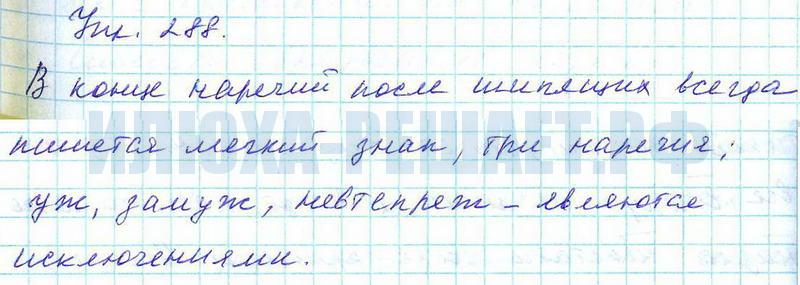 Упр. 288.
В конце наречий после шипящих всегда
пишется мягкий знак, три наречия;
уж, замуж, невтепреж – являются
исключениями.
ИЛЮХА-РЕШАЕТ.РФ